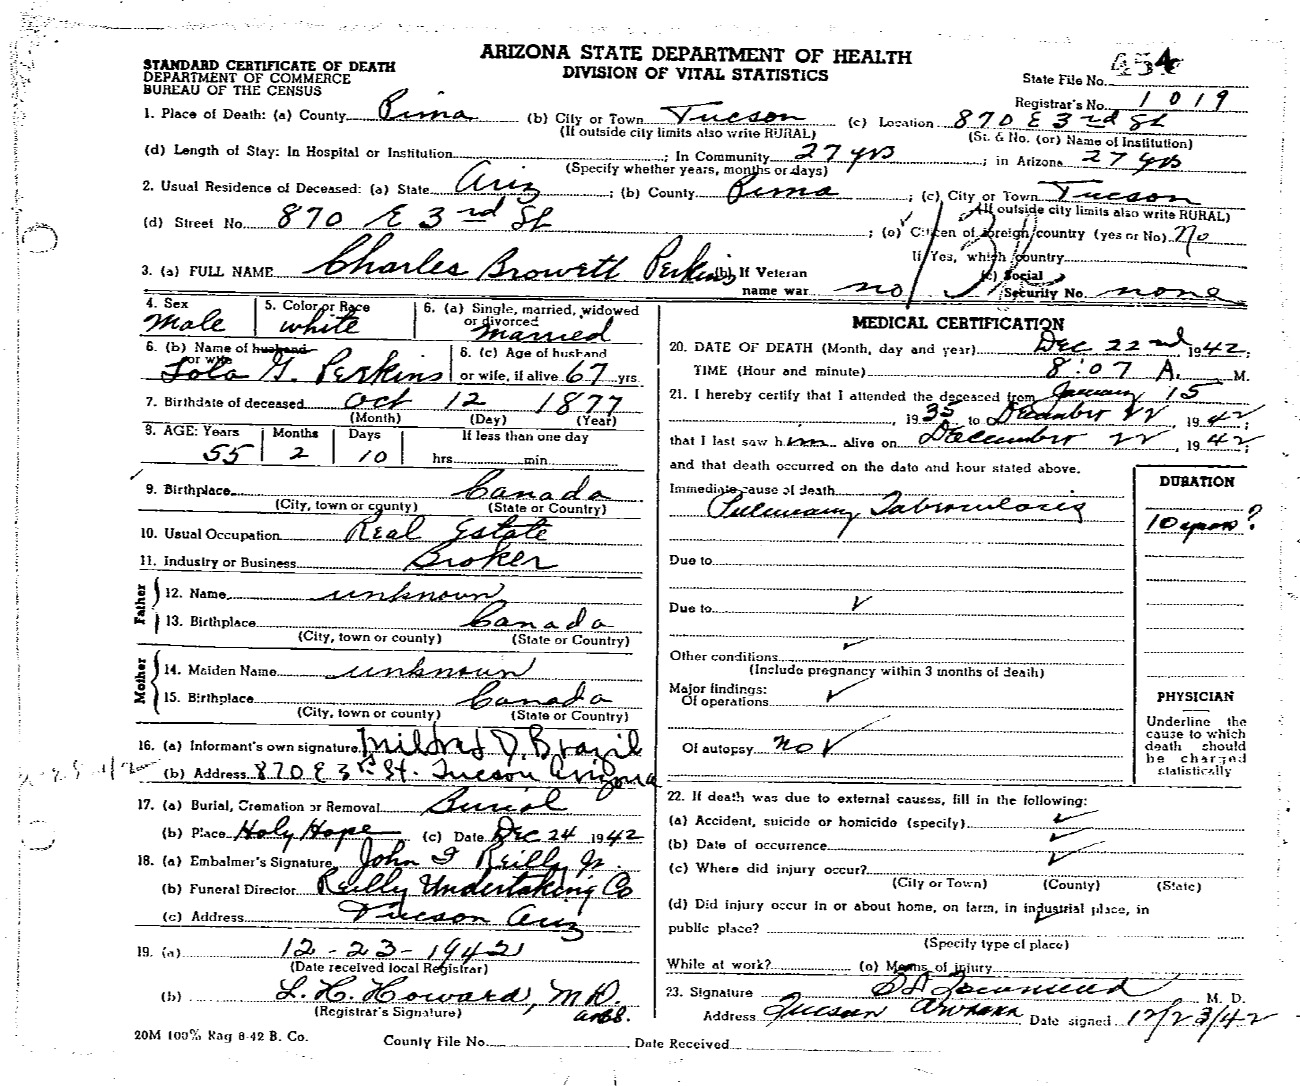 ARIZONA STATE DEPARTMENT OF HEALTH
DIVISION OF VITAL STATISTICS
STANDARD CERTIFICATE OF DEATH
DEPARTMENT OF COMMERCE
BUREAU OF THE CENSUS
State File No. 454
Registrar's No. 1019
1. Place of Death: (a) County Pima (b) City or Town Tucson (c) Location 870 E 3rd St
(If outside city limits also write RURAL) (St. & No. (or) Name of Institution)
(d) Length of Stay: In Hospital or Institution ; In Community 27 yrs ; in Arizona 27 yrs
(Specify whether years, months or days)
2. Usual Residence of Deceased: (a) State Ariz ; (b) County Pima ; (c) City or Town Tucson
(If outside city limits also write RURAL)
(d) Street No. 870 E 3rd St ; (e) Citizen of foreign country (yes or No) No
If Yes, which country
3. (a) FULL NAME Charles Browett Perkins (b) If Veteran name war no (c) Social Security No. none
4. Sex Male
5. Color or Race white
6. (a) Single, married, widowed or divorced Married
6. (b) Name of husband or wife Lola G. Perkins
6. (c) Age of husband or wife, if alive 67 yrs.
7. Birthdate of deceased Oct 12 1877
(Month) (Day) (Year)
8. AGE: Years Months Days If less than one day
55 2 10 hrs. min.
9. Birthplace Canada
(City, town or county) (State or Country)
10. Usual Occupation Real Estate
11. Industry or Business Broker
Father
12. Name unknown
13. Birthplace Canada
(City, town or county) (State or Country)
Mother
14. Maiden Name unknown
15. Birthplace Canada
(City, town or county) (State or Country)
16. (a) Informant's own signature Mildred D. Brazil
(b) Address 870 E 3rd St. Tucson Arizona
17. (a) Burial, Cremation or Removal Burial
(b) Place Holy Hope (c) Date Dec 24 1942
18. (a) Embalmer's Signature John F Reilly Jr.
(b) Funeral Director Reilly Undertaking Co
(c) Address Tucson Ariz
19. (a) 12-23-1942
(Date received local Registrar)
(b) L. H. Howard, M.D.
(Registrar's Signature)
MEDICAL CERTIFICATION
20. DATE OF DEATH (Month, day and year) Dec 22nd 1942
TIME (Hour and minute) 8:07 A. M.
21. I hereby certify that I attended the deceased from January 15
, 1935 to December 22, 1942;
that I last saw him alive on December 22, 1942;
and that death occurred on the date and hour stated above.
Immediate cause of death
Pulmonary Tuberculosis
DURATION
10 years?
Due to
Due to ✓
✓
Other conditions
(Include pregnancy within 3 months of death)
Major findings:
Of operations ✓
Of autopsy no ✓
PHYSICIAN
Underline the
cause to which
death should
be charged
statistically
22. If death was due to external causes, fill in the following:
(a) Accident, suicide or homicide (specify) ✓
(b) Date of occurrence ✓
(c) Where did injury occur? ✓
(City or Town) (County) (State)
(d) Did injury occur in or about home, on farm, in industrial place, in
public place? ✓
(Specify type of place)
While at work? (e) Means of injury
23. Signature Townsend M. D.
Address Tucson Arizona Date signed 12/23/42
20M 100% Rag 8-42 B. Co. County File No. Date Received